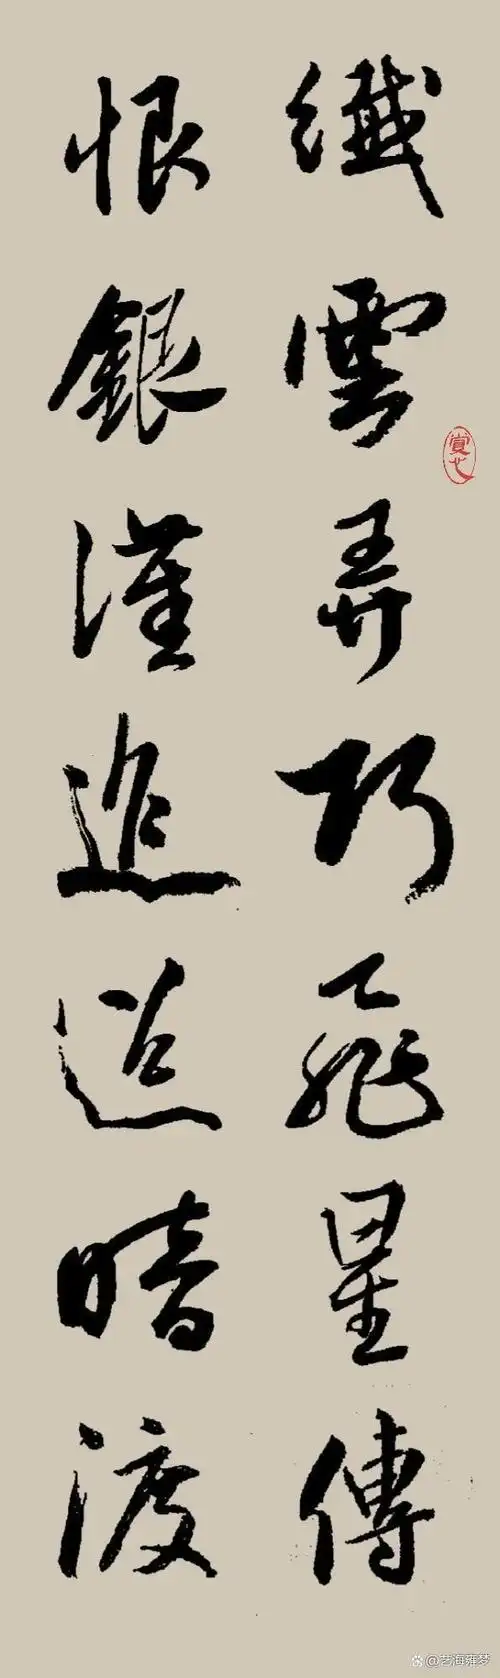 纖雲弄巧飛星傳
恨銀漢迢迢暗渡
賞心
艺海雍梦